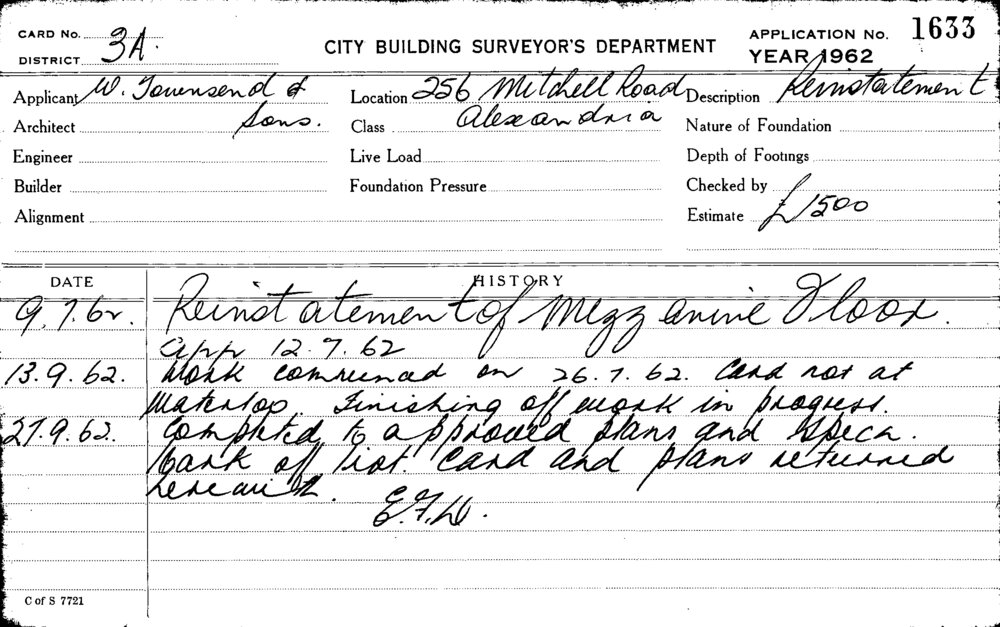 CARD No.
DISTRICT 3A.
CITY BUILDING SURVEYOR'S DEPARTMENT
APPLICATION No. 1633
YEAR 1962
Applicant W. Townsend &
Sons.
Architect
Engineer
Builder
Alignment
Location 256 Mitchell Road
Alexandria
Class
Live Load
Foundation Pressure
Description Reinstatement
Nature of Foundation
Depth of Footings
Checked by
Estimate £1500
DATE HISTORY
9.7.62. Reinstatement of Mezzanine Floor.
App 12.7.62
13.9.62. Work commenced on 26.7.62. Card not at
Waterloo. Finishing off work in progress.
27.9.62. Completed to approved plans and specn.
off Card and plans returned
herewith.
C of S 7721